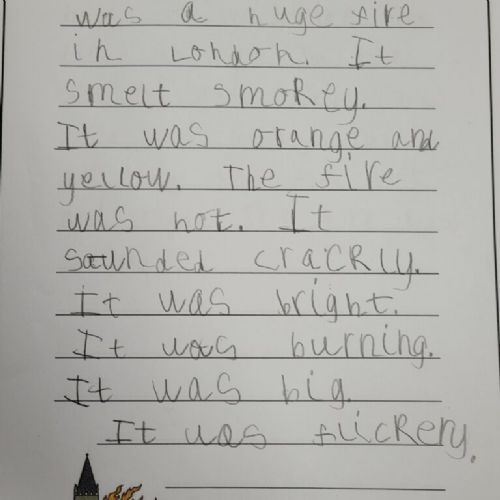 was a huge fire
in London. It
smelt smokey.
It was orange and
yellow. The fire
was hot. It
saunded crackly.
It was bright.
It was burning.
It was big.
It was flickery.